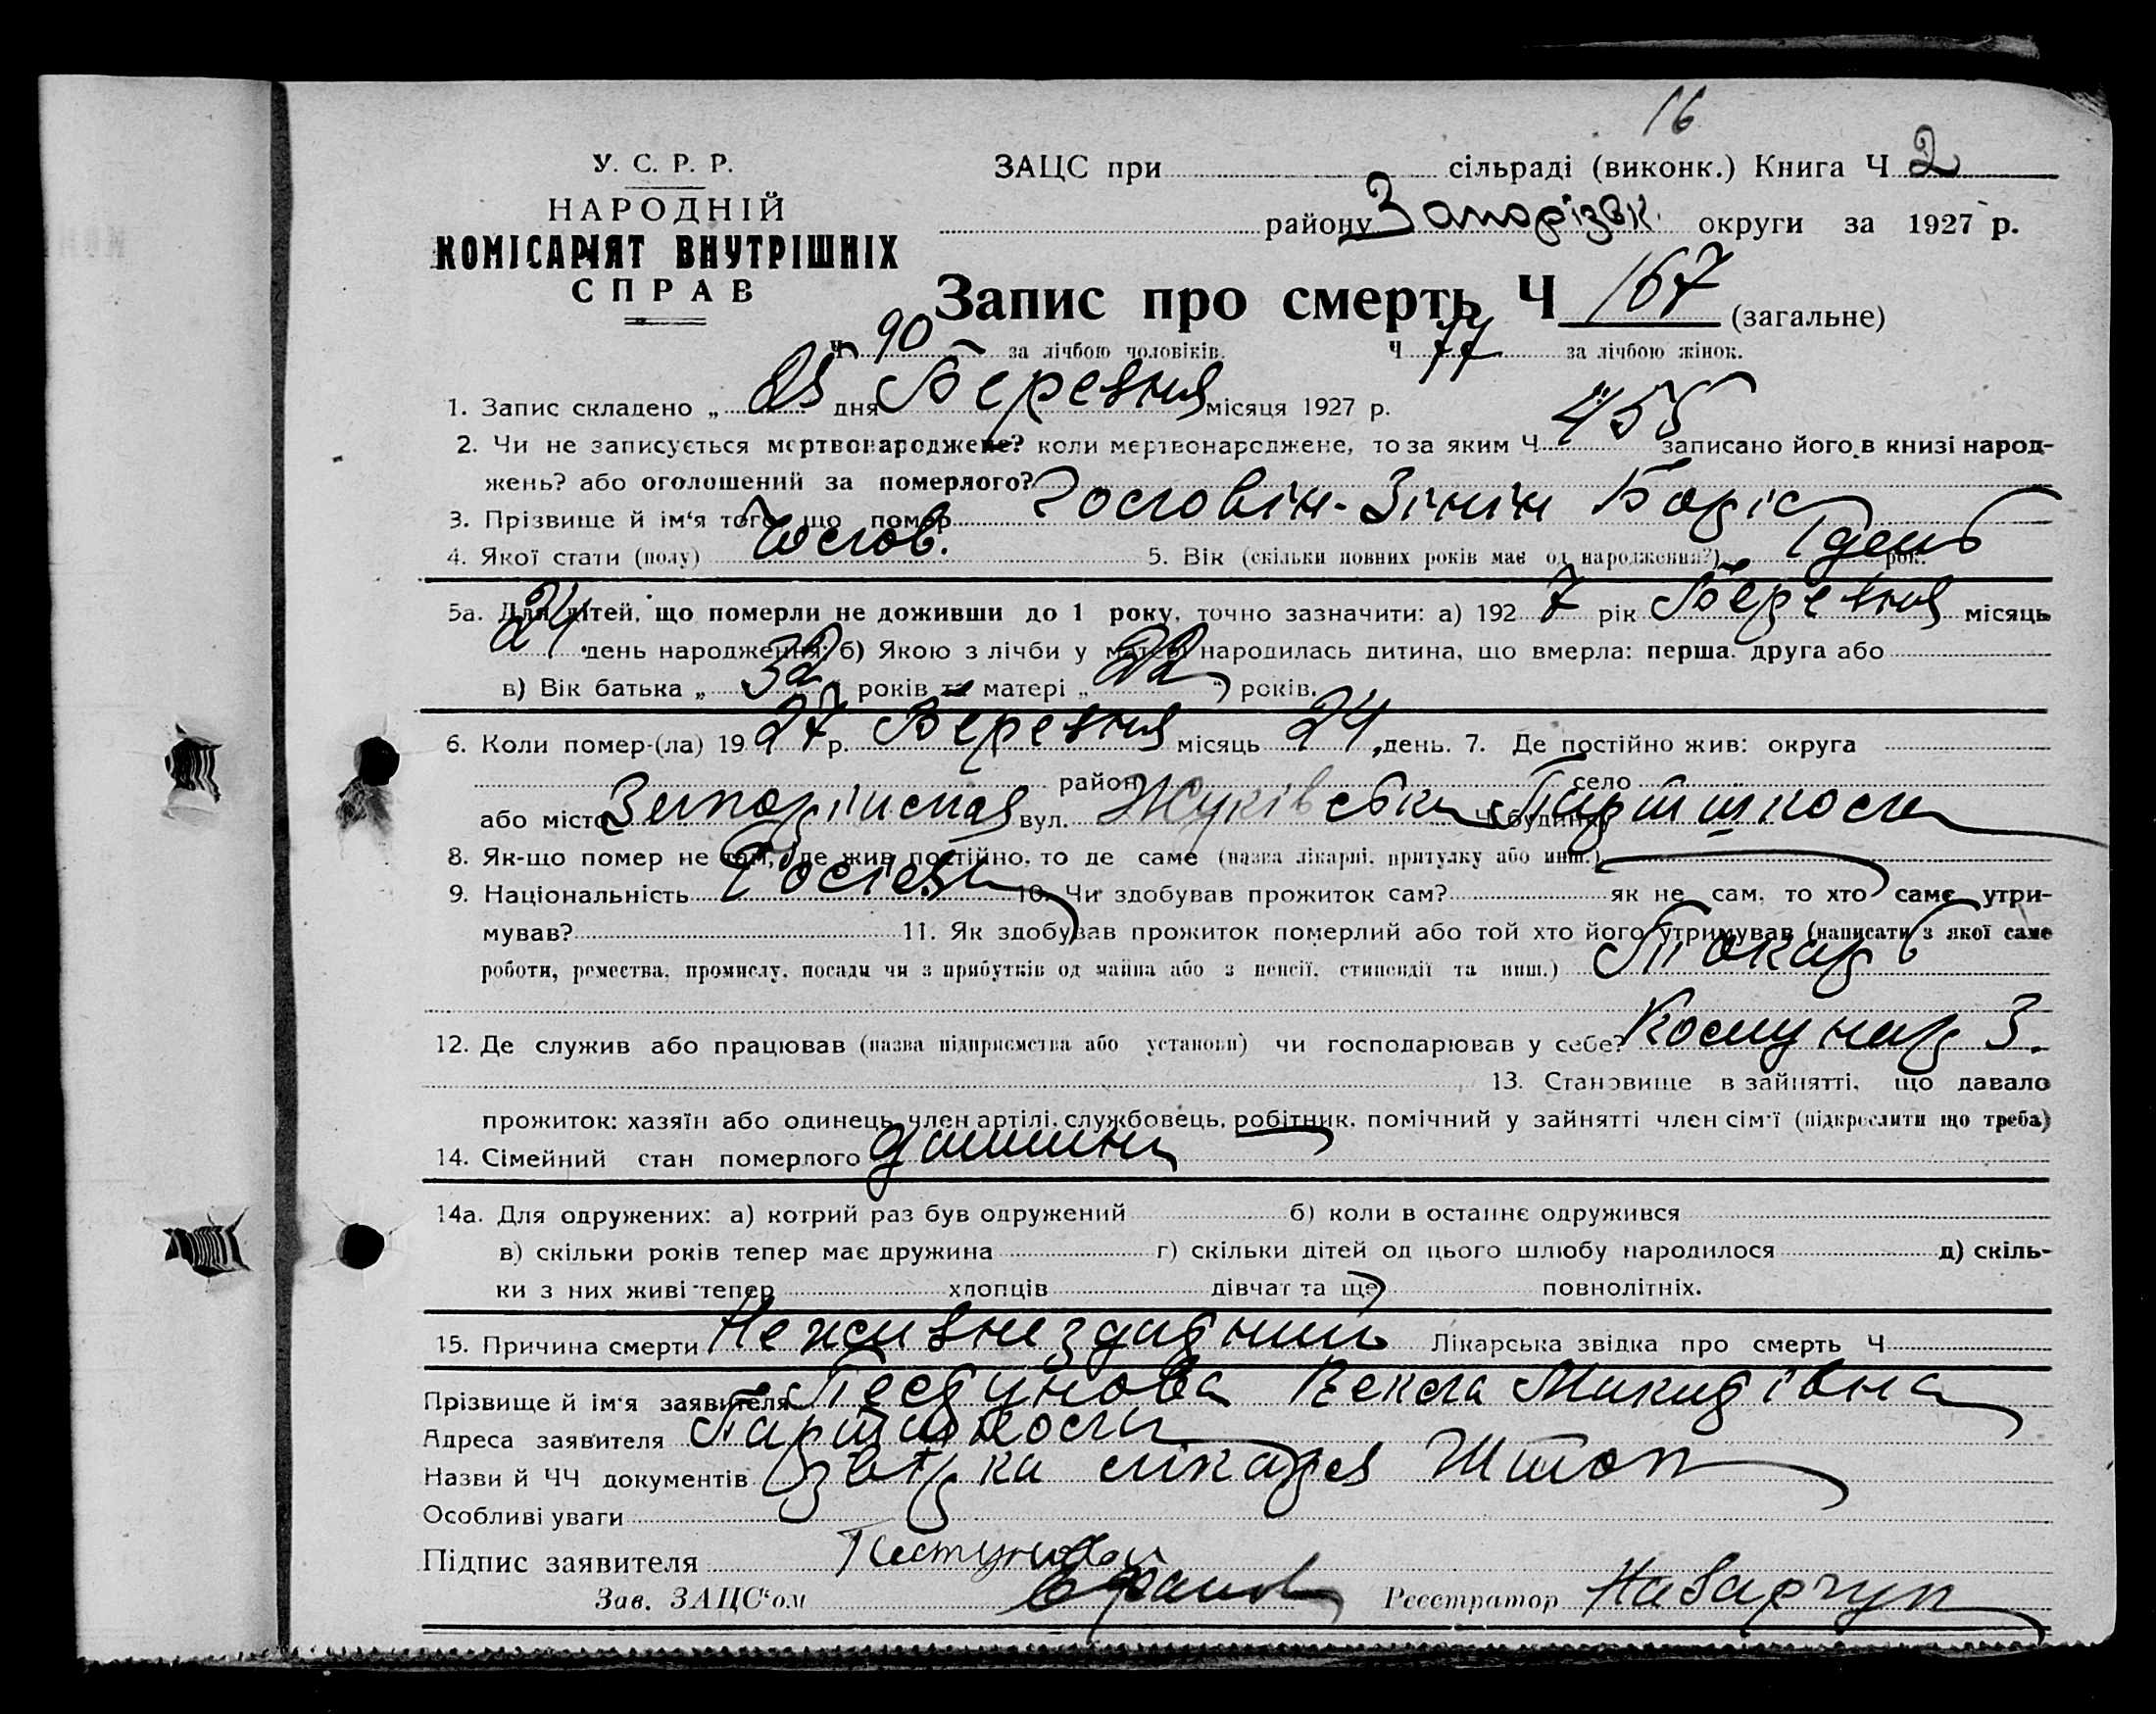 16
У. С. Р. Р.
НАРОДНІЙ
КОМІСАРІЯТ ВНУТРІШНІХ
СПРАВ
ЗАЦС при сільраді (виконк.) Книга Ч 2
району Запорізьк. округи за 1927 р.
Запис про смерть Ч 167 (загальне)
Ч 90 за лічбою чоловіків. Ч 77 за лічбою жінок.
1. Запис складено „ 25 дня Березня місяця 1927 р.
2. Чи не записується мертвонароджене? коли мертвонароджене, то за яким Ч 455 записано його в книзі народ-
жень? або оголошений за померлого?
3. Прізвище й ім'я того, що помер Зінін Боріс
4. Якої стати (полу) Чолов. 5. Вік (скільки повних років має од народження?) 1 день рок.
5а. Для дітей, що померли не доживши до 1 року, точно зазначити: а) 192 7 рік Березня місяць
24 день народження; б) Якою з лічби у матері народилась дитина, що вмерла: перша. друга або
в) Вік батька „ 32 " років та матері „ 22 " років.
6. Коли помер-(ла) 19 27 р. Березня місяць 24 день. 7. Де постійно жив: округа
район село
або місто Запоріжжя вул. Жуківська Ч будинку
8. Як-що помер не там, де жив постійно, то де саме (назва лікарні, притулку або инш.)
9. Національність 10. Чи здобував прожиток сам? як не сам, то хто саме утри-
мував? 11. Як здобував прожиток померлий або той хто його утримував (написати з якої саме
роботи, ремества, промислу, посади чи з прибутків од майна або з пенсії, стипендії та инш.) Токарь
12. Де служив або працював (назва підприємства або установи) чи господарював у себе? Комунар З.
13. Становище в зайнятті, що давало
прожиток: хазяїн або одинець, член артілі, службовець, робітник, помічний у зайнятті член сім'ї (підкреслити що треба)
14. Сімейний стан померлого дитина
14а. Для одружених: а) котрий раз був одружений б) коли в останнє одружився
в) скільки років тепер має дружина г) скільки дітей од цього шлюбу народилося д) скіль-
ки з них живі тепер хлопців дівчат та ще повнолітніх.
15. Причина смерти Неживнездатний Лікарська звідка про смерть Ч
Прізвище й ім'я заявителя Пестунова Векла Микитівна
Адреса заявителя
Назви й ЧЧ документів лікаря
Особливі уваги
Підпис заявителя Пестунова
Зав. ЗАЦС'ом Реєстратор